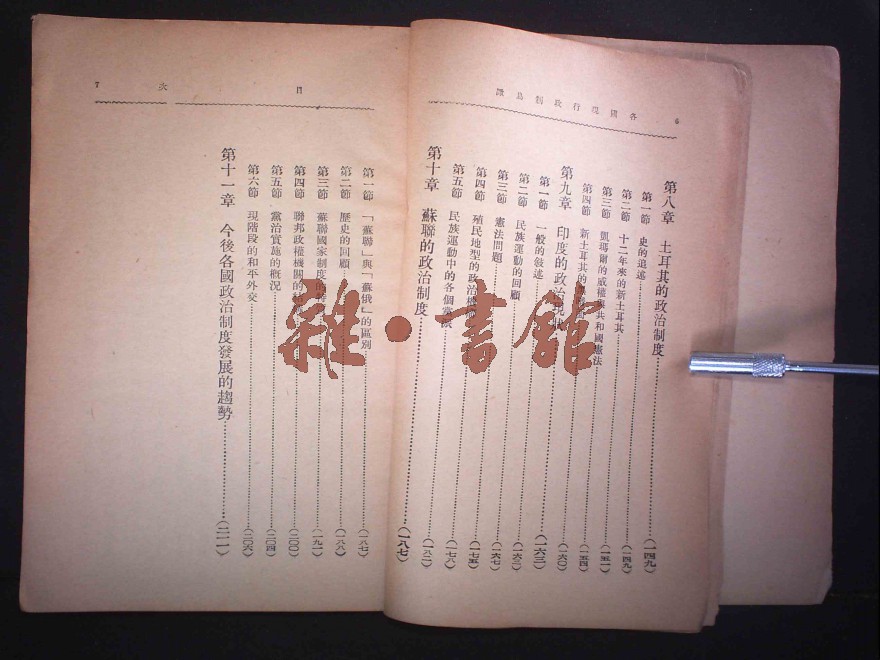 各國現行政制鳥瞰 6
第八章 土耳其的政治制度……(一四九)
第一節 史的追述……(一四九)
第二節 十二年來的新土耳其……(一五一)
第三節 凱瑪爾的威權與共和國憲法……(一五四)
第四節 新土耳其的……(一六〇)
第九章 印度的政治現……(一六三)
第一節 一般的敍述……(一六三)
第二節 民族運動的回顧……(一六七)
第三節 憲法問題……(一七五)
第四節 殖民地型的政治機……(一七八)
第五節 民族運動中的各個黨派……(一八二)
第十章 蘇聯的政治制度……(一八七)
目次 7
第一節 「蘇聯」與「蘇俄」的區別……(一八七)
第二節 歷史的回顧……(一八八)
第三節 蘇聯國家制度的特……(一九一)
第四節 聯邦政權機關的……(二〇〇)
第五節 黨治實施的概況……(二〇四)
第六節 現階段的和平外交……(二〇六)
第十一章 今後各國政治制度發展的趨勢……(二一一)
雜·書館